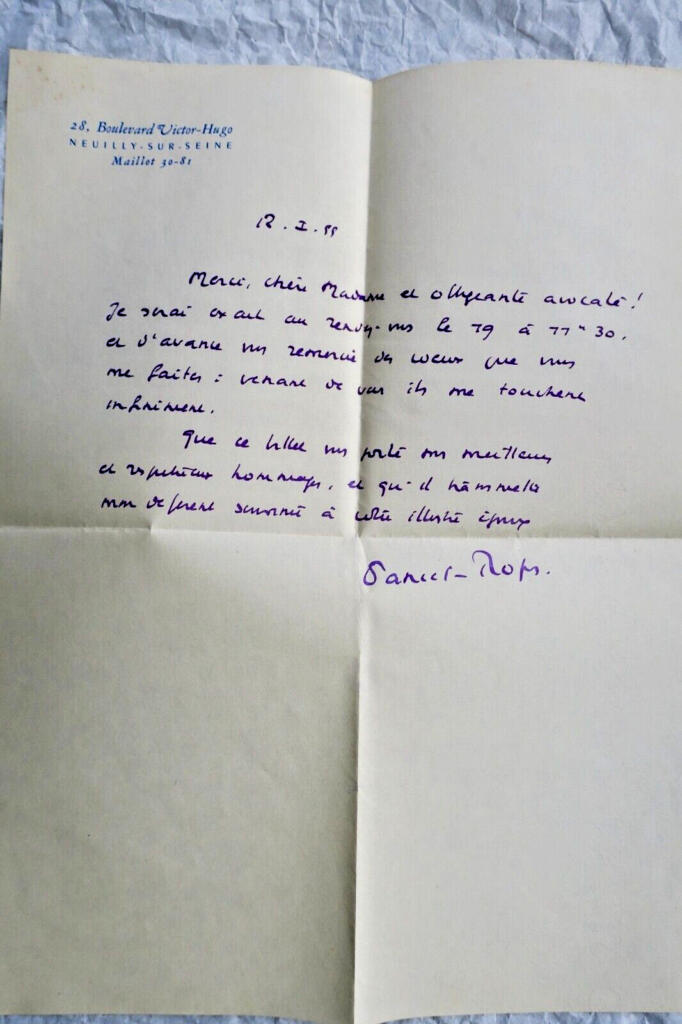 28, Boulevard Victor-Hugo
NEUILLY-SUR-SEINE
Maillot 30-81
12 . I . 55
Merci, chère Madame et obligeante avocate !
Je serai exact au rendez-vous le 19 à 11h 30,
et d'avance vous remercie des voeux que vous
me faites : venant de vous ils me touchent
infiniment.
Que ce billet vous porte mes meilleurs
et respectueux hommages, et qu'il transmette
mon déférent souvenir à votre illustre époux
Daniel-Rops.